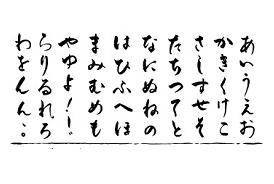 あいうえお
かきくけこ
さしすせそ
たちつてと
なにぬねの
はひふへほ
まみむめも
やゆよ！
らりるれろ
わをんん